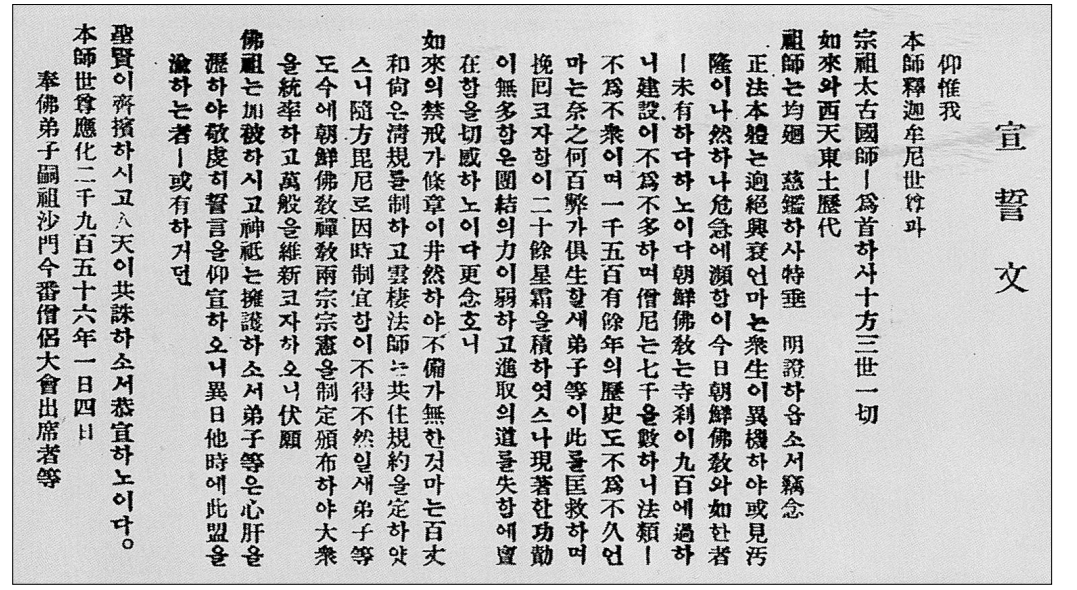 宣誓文
仰惟我
本師釋迦牟尼世尊과
宗祖太古國師ㅣ爲首하사十方三世一切
如來와西天東土歷代
祖師는均廻　慈鑑하사特垂　明證하옵소서竊念
正法本體는逈絕興衰언마는衆生이異機하야或見汚
隆이나然하나危急에瀕함이今日朝鮮佛敎와如한者
ㅣ未有하다하노이다朝鮮佛敎는寺刹이九百에過하
니建設이不爲不多하며僧尼는七千을數하니法類ㅣ
不爲不衆이며一千五百有餘年의歷史도不爲不久언
마는奈之何百弊가俱生할새弟子等이此를匡救하며
挽回코자함이二十餘星霜을積하엿스나現著한功勣
이無多함은團結의力이弱하고進取의道를失함에實
在함을切感하노이다更念호니
如來의禁戒가條章이井然하야不備가無한것마는百丈
和尙은淸規를制하고雲棲法師는共住規約을定하얏
스니隨方毘尼로因時制宜함이不得不然일새弟子等
도今에朝鮮佛敎禪敎兩宗宗憲을制定頒布하야大衆
을統率하고萬般을維新코자하오니伏願
佛祖는加被하시고神祇는擁護하소서弟子等은心肝을
瀝하야敬虔히誓言을仰宣하오니異日他時에此盟을
渝하는者ㅣ或有하거던
聖賢이齊擯하시고人天이共誅하소서恭宣하노이다。
本師世尊應化二千九百五十六年一日四日
奉佛弟子嗣祖沙門今番僧侶大會出席者等